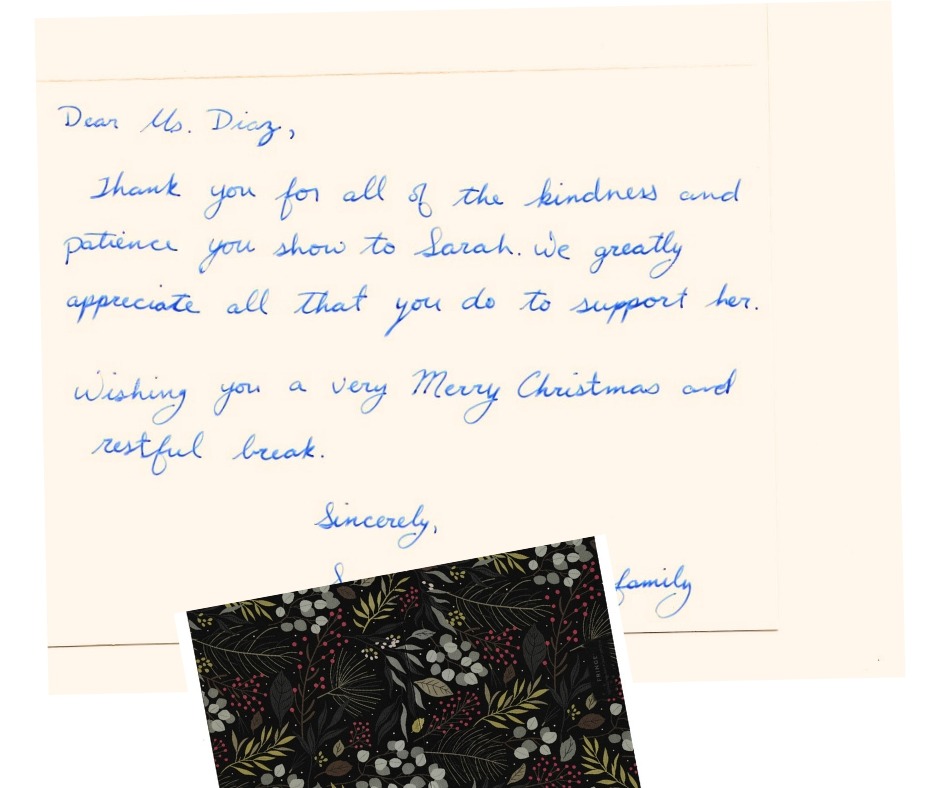 Dear Ms. Diaz,
Thank you for all of the kindness and
patience you show to Sarah. We greatly
appreciate all that you do to support her.
Wishing you a very Merry Christmas and
restful break.
Sincerely,
family